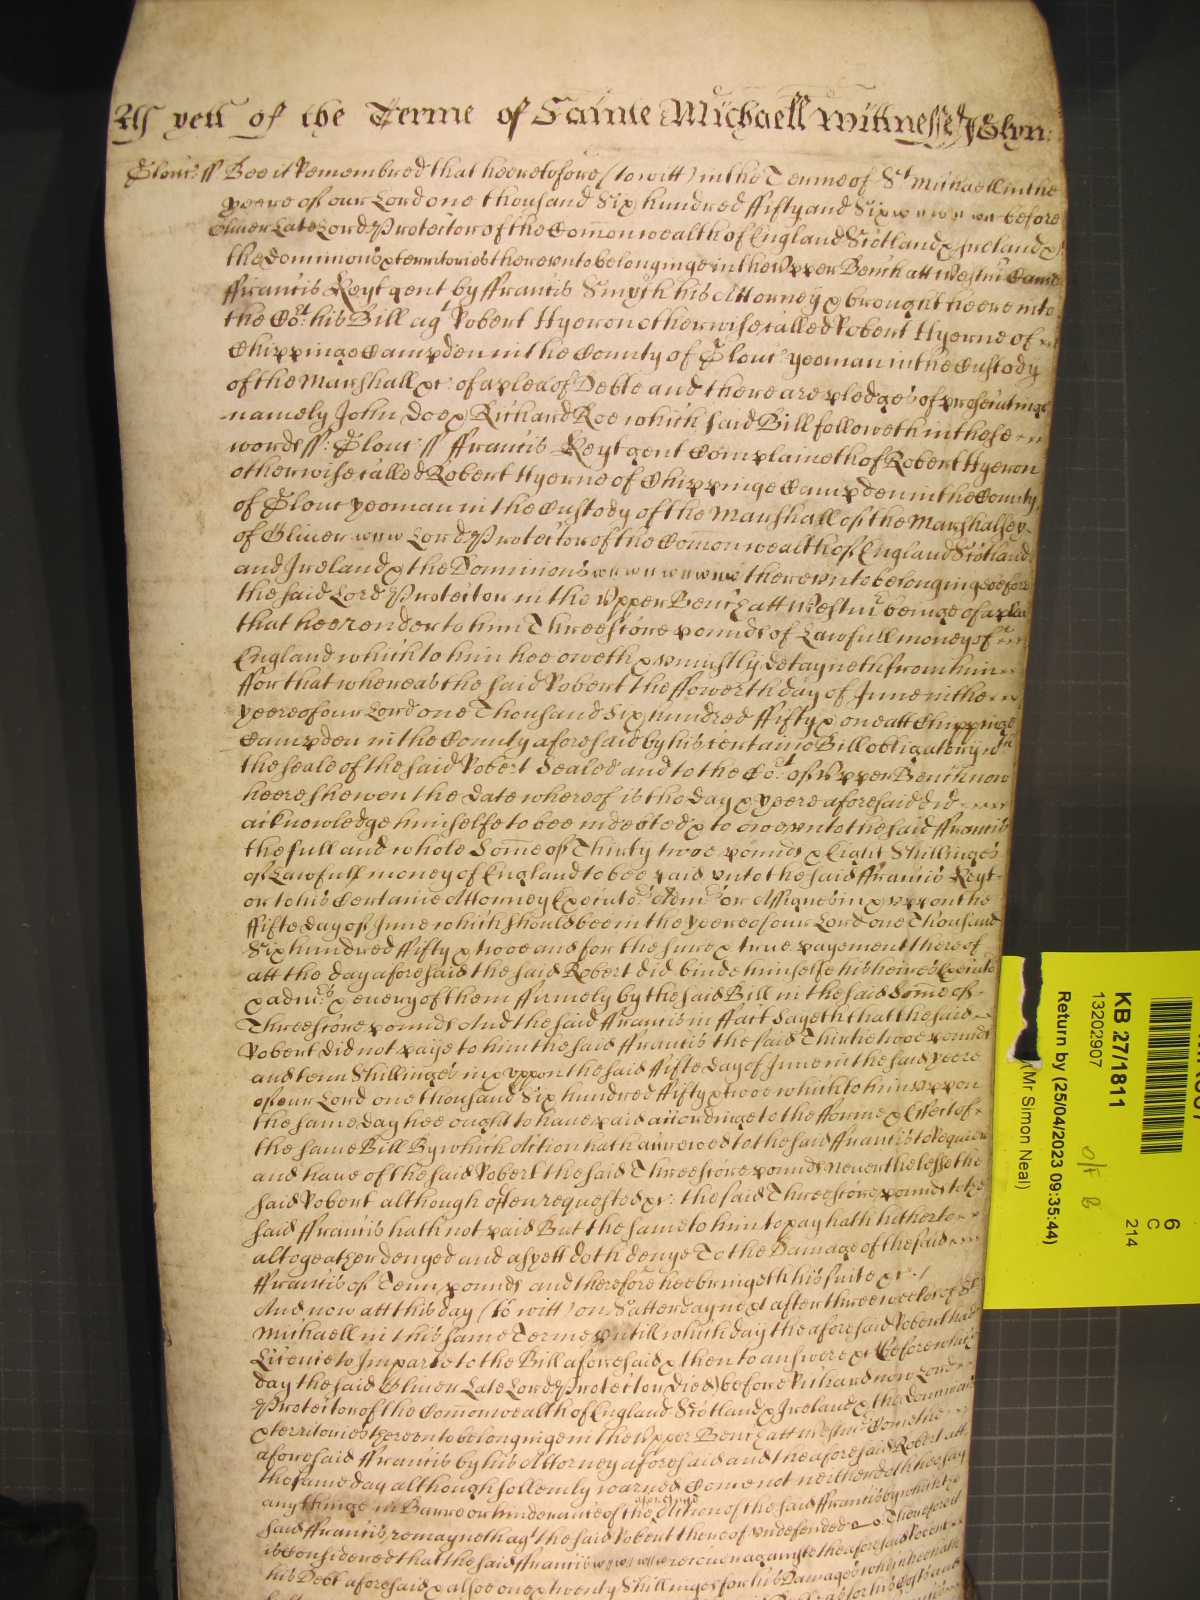 As yett of the Terme of Sainte Michaell Wittnesse J Glyn:
Glouc ss Bee it Remembred that heeretofore (to witt) in the Terme of St Michaell in the
yeere of our Lord one thousand Six hundred ffifty and Six before
Oliver Late Lord Protector of the Comonwealth of England Scotland & Ireland &
the dominions & territories thereunto belonginge in the Upper Bench att Westmr Came
ffrancis Keyt gent by ffrancis Smyth his Attorney & brought heere into
the Cot: his Bill agt Robert Hyeron otherwise called Robert Hyerne of
Chippinge Campden in the County of Glouc yeoman in the Custody
of the Marshall &c: of a plea of Debte and there are pledges of prosecutinge
namely John Doe & Richard Roe which said Bill followeth in these
words ss: Glouc ss ffrancis Keyt gent Complaineth of Robert Hyeron
otherwise called Robert Hyerne of Chippinge Campden in the County
of Glouc yeoman in the Custody of the Marshall of the Marshalsey
of Oliver Lord Protector of the Comonwealth of England Scotland
and Ireland & the Dominions thereunto belonginge before
the said Lord Protector in the Upper Bench att Westmr beinge of a plea
that hee render to him Threescore pounds of Lawfull money of
England which to him hee oweth & uniustly detayneth from him
ffor that whereas the said Robert the ffowerth day of June in the
yeere of our Lord one Thousand Six hundred ffifty & one att Chippinge
Campden in the County aforesaid by his certaine Bill obligatory wth
the seale of the said Robert Sealed and to the Cot of Upper Bench now
heere shewen the date whereof is the day & yeere aforesaid did
acknowledge himselfe to bee indebted & to owe unto the said ffrancis
the full and whole Some of Thirty twoe pounds & Eight Shillinges
of Lawfull money of England to bee paid unto the said ffrancis Keyt
or to his Certaine Attorney Executors Admrs or Assignes in & uppon the
ffifte day of June which should bee in the yeere of our Lord one Thousand
Six hundred ffifty & twoe and for the sure & true payement thereof
att the day aforesaid the said Robert did binde himselfe his heires Executors
& admrs & every of them ffirmely by the said Bill in the said Some of
Threescore pounds And the said ffrancis in ffact Sayeth that the said
Robert did not paye to him the said ffrancis the said Thirtie twoe pounds
and tenn Shillinges in & uppon the said ffifte day of June in the said yeere
of our Lord one thousand Six hundred ffifty & twoe which to him uppon
the same day hee ought to have paid accordinge to the fforme & Effect of
the same Bill By which Action hath accrewed to the said ffrancis to Require
and have of the said Robert the said Threescore pounds neverthelesse the
said Robert although often requested &c: the said Threescore pounds to the
said ffrancis hath not paid But the same to him to pay hath hitherto
altogeather denyed and as yett doth denye To the Damage of the said
ffrancis of Tenn pounds and therefore hee bringeth his suite &c:/
And now att this day (to witt) on Satterday next after three weeks of St
Michaell in this same Terme untill which day the aforesaid Robert had
Licence to Imparle to the Bill aforesaid & then to answere &c (before which
day the said Oliver Late Lord Protector died) before Richard now Lord
Protector of the Comonwealth of England Scotland & Ireland & the dominions
& territories thereunto belonginge in the Upper Bench att Westmr Come the
aforesaid ffrancis by his Attorney aforesaid and the aforesaid Robert att
the same day although sollemly warned Come not neither doth hee say
any thinge in Barre or hinderance of the aforesaid Action of the said ffrancis by which the
said ffrancis remayneth agt the said Robert thereof undefended Therefore it
is Considered that the said ffrancis recover againste the aforesaid Robert
his Debt aforesaid & alsoe one & twenty Shillinges for his Damages which hee hath
KB 27/1811
13202907
Return by (25/04/2023 09:35:44)
(Mr Simon Neal)
6
C
214